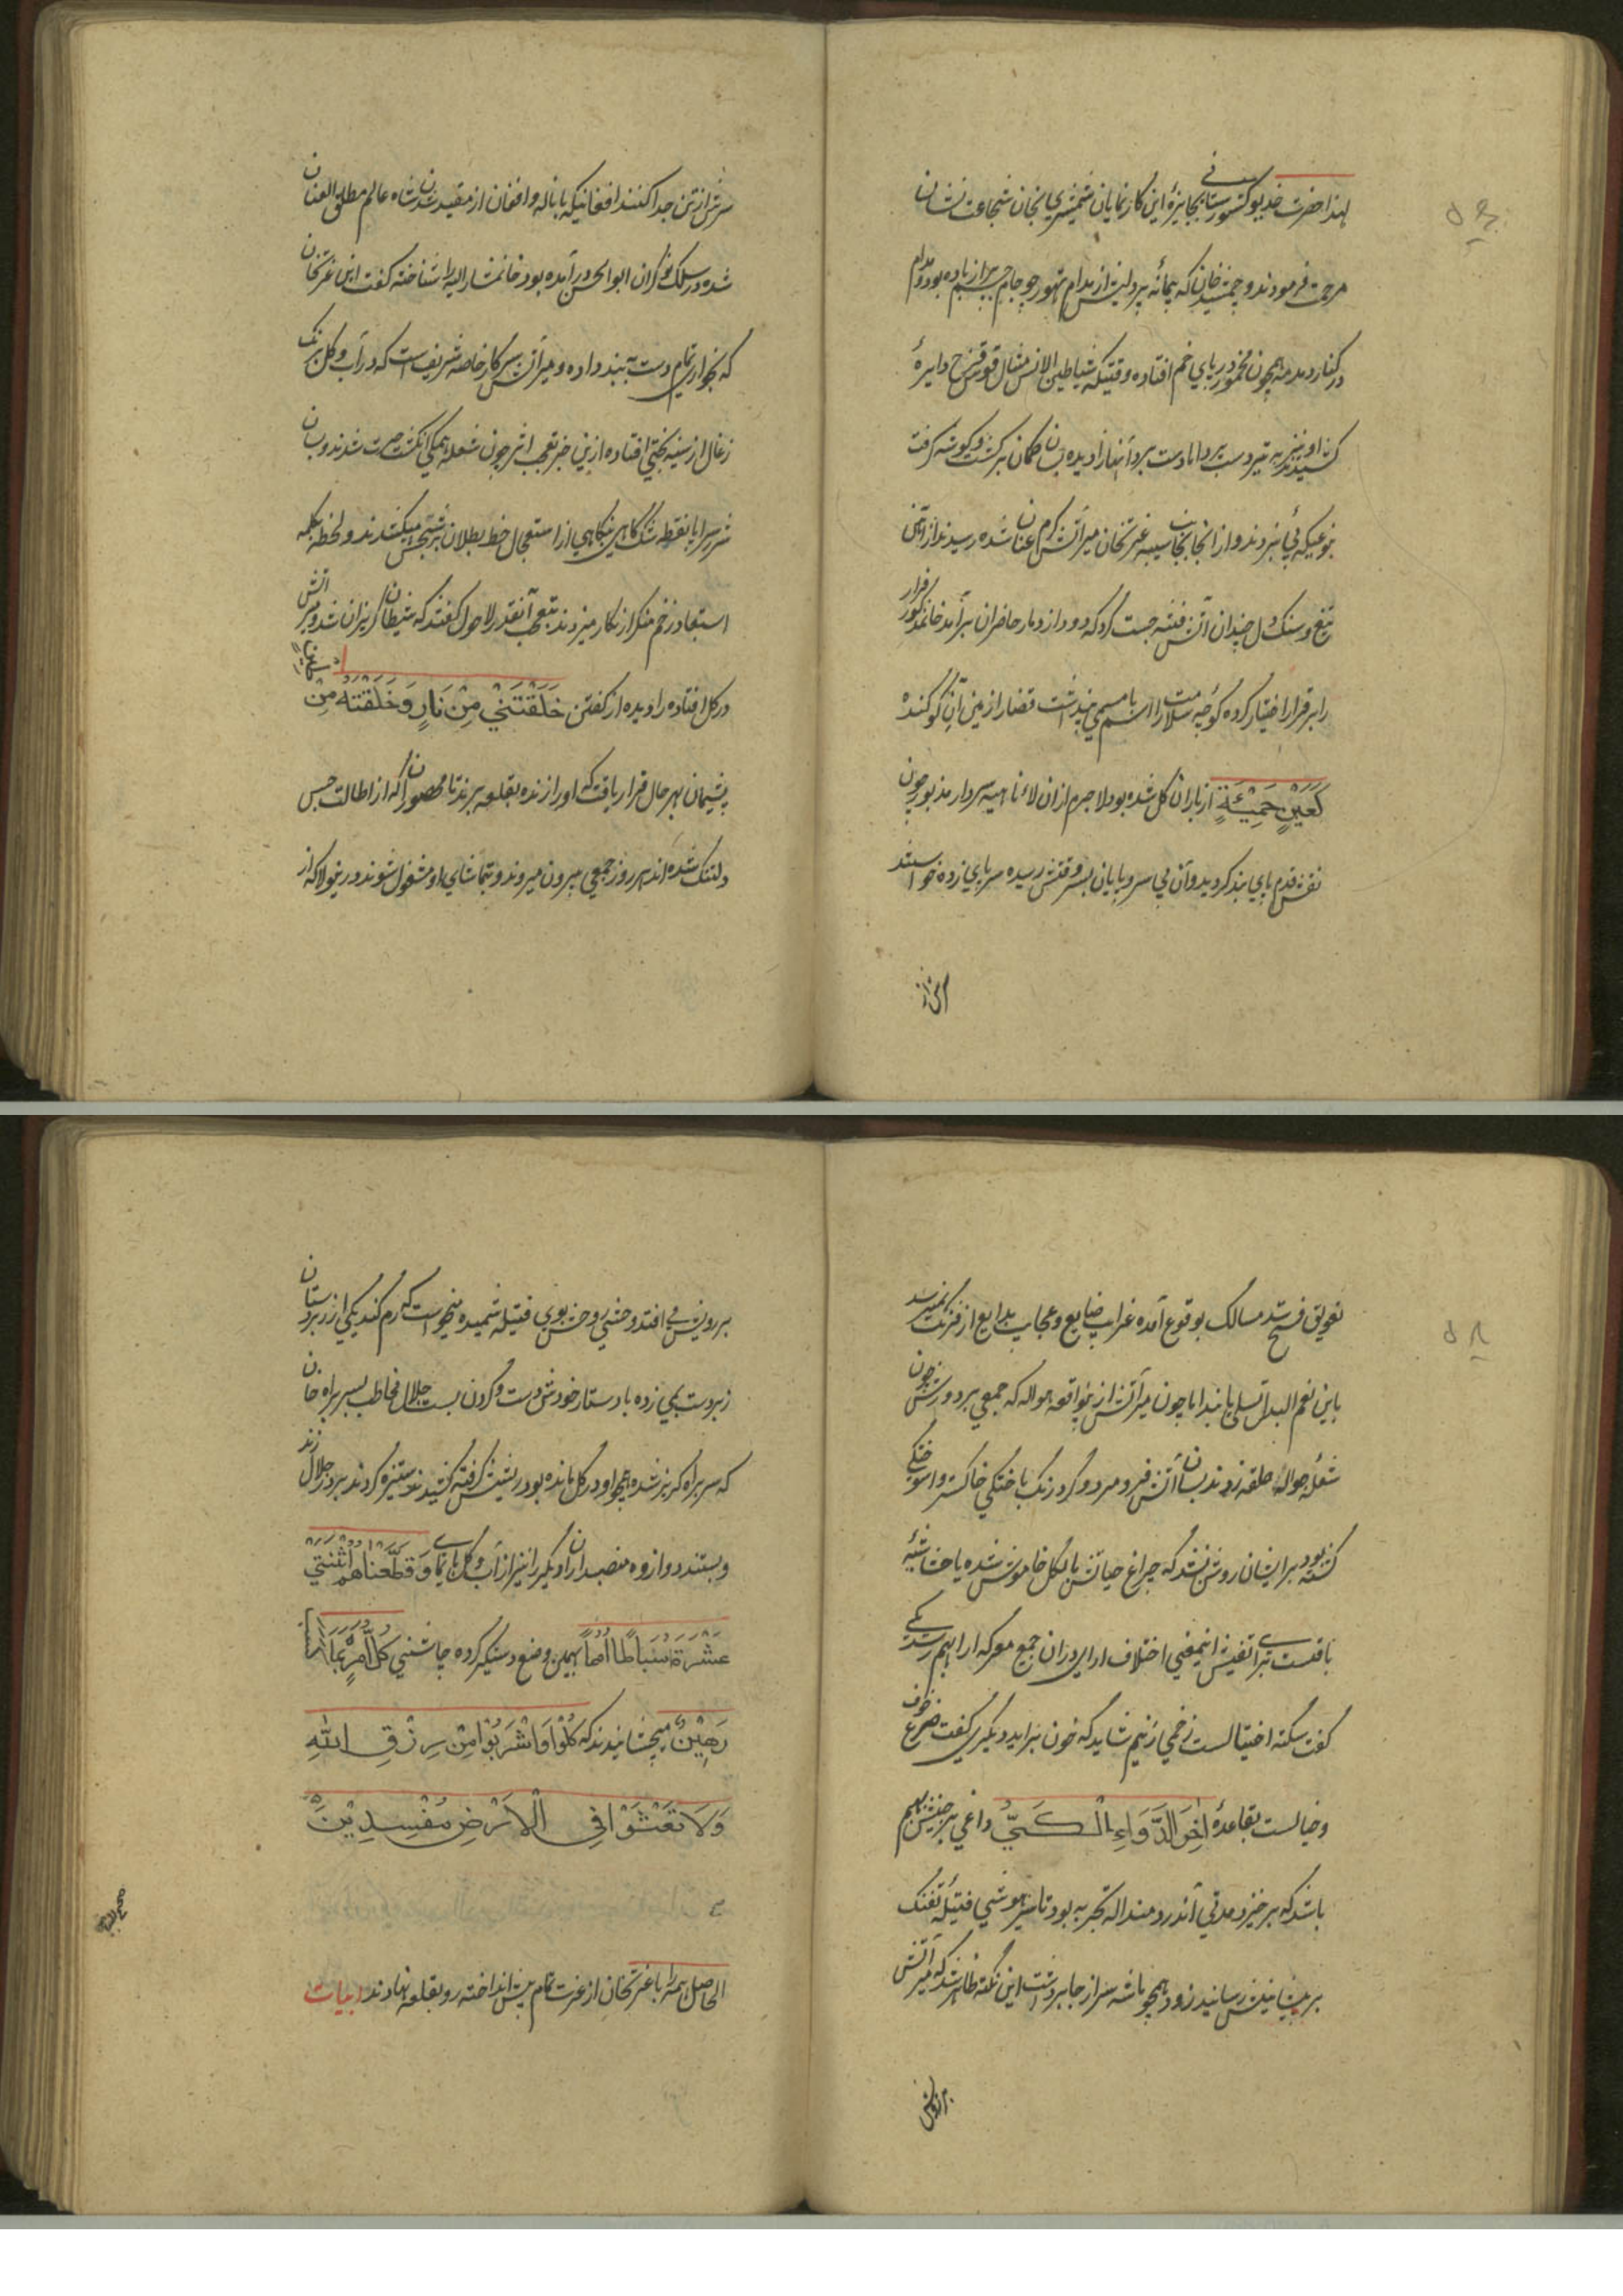 لهذا حضرت خدیو کشورستانی بجایزهٔ این کار نمایان شمشیری بخان شجاعت نشان
مرحمت فرمودند و جمشید خان که پیمانهٔ پردلیش از مدام تهور چو جام جم پر از باده بود مدام
در کنار دمدمه همچون مخمور در پای خم افتاده وقتیکه شیاطین الانس مثال قوس قزح دایرهٔ
کشیدند او نیز به تیر دست برد اما دست برد آنها را دیده بسان کمان برگشت و گوشه گرفت
نوعیکه پی نبردند و از آنجا بجانب سیبه غیرتخان میر آتش گرم عنان شده رسیدند از آتش
تیغ و سنگ دل چندان آتش فتنه جست کرد که دود از دمار حاضران برآمد خانمذکور فرار
را بر قرار اختیار کرده کوچهٔ سلامت را اسم بامسمی پنداشت قضارا زمین آن کوکنده
کَعَیْنٍ حَمِئَةٍ از باران گل شده بود لاجرم ازان لاء ناهیه سردار مذبور چون
نقش قدم پای بند کردید و آن بی سر و پایان بسر وقتش رسیده سر پای زده خواستند
سرش از
سرش از تن جدا کنند افغانیکه با ناله و افغان از مقید شدن شاه عالم مطلق العنان
شده در سلک نوکران ابوالحسن درآمده بود خانمشارالیه را شناخته گفت این غیرتخان
که بخواری تمام دست به بند داده و میر آتش سرکار خاصه شریفه است که در آب و گل برنگ
زغال از سینه بختی افتاده ازین خبر تعجب اثر چون شعله همگی انگشت حیرت شدند و بسان
شرر سراپا نقطه شک گاهی بنگاهی از استعجال خط بطلان برشبهش میکشیدند و لحظه بکلمه
استبعاد زخم منکر از نکار میزدند بتعجب آنقدر لاحول گفتند که شیطان گریزان شد و میر آتش
در گل افتاده را دیده از گفتن خَلَقْتَنِیْ مِنْ نَارٍ وَخَلَقْتَهُ مِنْ
پشیمان بهر حال قرار یافت که او را زنده بقلعه برند تا محصوران که از اطالت حبس
دلتنگ شده اند هر روز جمعی بیرون میروند و بتماشای او مشغول شوند درینولا که از
تعویق فتح و سد مسالک بوقوع آمده غرایب ضایع و عجایب بدایع از فرنگ نمیرسد
باین نعم البدل تسلی یابند اما چون میر آتش ازین واقعه هواله که جمعی بر دورش چون
شعلهٔ جواله حلقه زدند بسان آتش فرو مرد و گرد رنگ باختگی خاکستر وا سوختگی
گشته بود بر ایشان روشن نشد که چراغ حیاتش بالکل خاموش شده یا حشاشهٔ
باقیست برای تفتیش اینمعنی اختلاف ارای دران جمع معرکه ارا بهم رسید یکی
گفت سکته احتیالست زخمی زنیم شاید که خون براید دیگری گفت صرع خوف
و خیالست بقاعدهٔ اٰخِرُ الدَّوَاءِ الْکَیُّ داغی بر جبینش نهیم
باشد که برخیزد مدتی آندردمند اله تجربه بود تا سر موشی فتیلهٔ تفنگ
بر بینیش رسانیدند زود همچو ماشه سر از جا برداشت این نکته ظاهر شد که میر آتش
بر رویش
بر رویش می افتد و حشی و خش بوی فتیله شمیده میخواست که رم کند یکی از زبردستان
زبردست پی زده با دستار خودش دست و گردن بست جلال مخاطب بسربراه خان
که سربراه گریز شده همچو او در گل مانده بود ریشش گرفته کشیدند ستیزه کردند بر در جلال زند
و بستند دوازده منصبدار دیگر را نیز از آب و گل پای نما وَقَطَّعْنَاهُمُ اثْنَتَیْ
عَشْرَةَ اَسْبَاطًا اُمَمًا بهمین وضع دستگیر کرده چاشنی کُلُّ امْرِئٍ بِمَا کَسَبَ
رَهِیْنٌ میچشانیدند که کُلُوْا وَاشْرَبُوْا مِنْ رِزْقِ اللهِ
وَلَا تَعْثَوْا فِی الْاَرْضِ مُفْسِدِیْنَ
الحاصل همه را با غیرتخان از عزت تمام پیش انداخته رو بقلعه نهادند ابیات